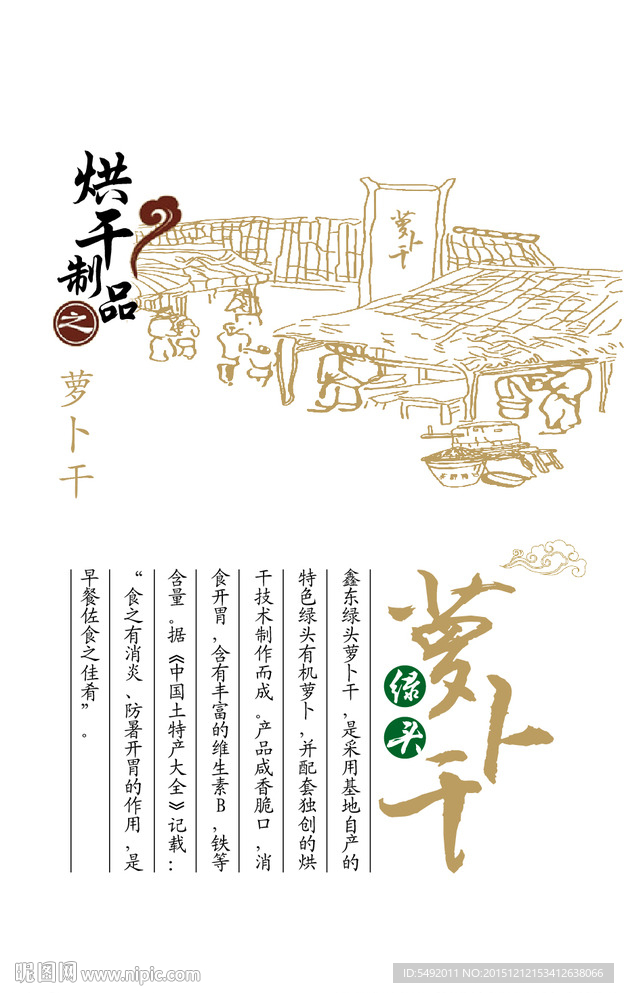 烘干制品
之
萝卜干
萝卜干
萝卜干
绿头
鑫东绿头萝卜干，是采用基地自产的
特色绿头有机萝卜，并配套独创的烘
干技术制作而成。产品咸香脆口，消
食开胃，含有丰富的维生素B，铁等
含量。据《中国土特产大全》记载：
“食之有消炎、防暑开胃的作用，是
早餐佐食之佳肴”。
昵图网 www.nipic.com
ID:5492011 NO:20151212153412638066